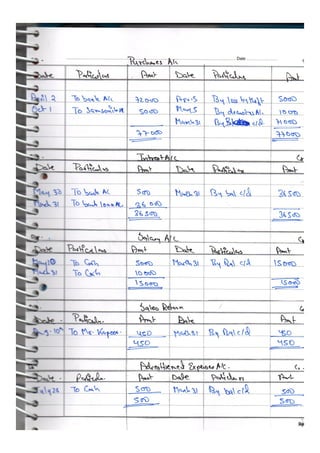 Purchases A/c
Date Particulars Amt Date Particulars Amt
April 2 To bank A/c 72000 Apr 5 By loss by theft 5000
Oct 1 To 5000 May 5 By drawings A/c 1000
March 31 By c/d 71000
77000 77000
Interest A/c
Date Particulars Amt Date Particulars Amt
May 30 To bank AC 500 March 31 By bal c/d 26500
March 31 To bank loan AC 26000
26500 26500
Salary A/c
Date Particulars Amt Date Particulars Amt
To Cash 5000 March 31 By Bal c/d 15000
March 31 To Cash 10000
15000 15000
Sales Return
Date Particula. Amt Date Particulars Amt
To Mr. Kapoor 450 March 31 By Bal c/d 450
450 450
Expenses A/c.
Date Amt Date Particulars Amt
July 28 To Cash 500 March 31 By bal c/d 500
500 500